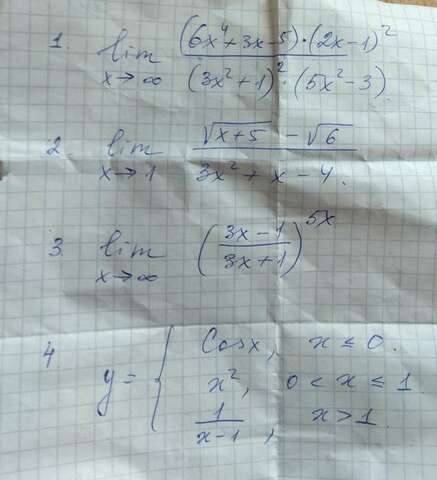 1. lim x→∞ (6x⁴+3x-5)·(2x-1)² / (3x²+1)²·(5x²-3)
2. lim x→1 √x+5 - √6 / 3x²+x-4.
3 lim x→∞ (3x-1 / 3x+1)⁵ˣ
4 y = { Cosx, x ≤ 0.
x², 0 < x ≤ 1
1 / x-1, x > 1.